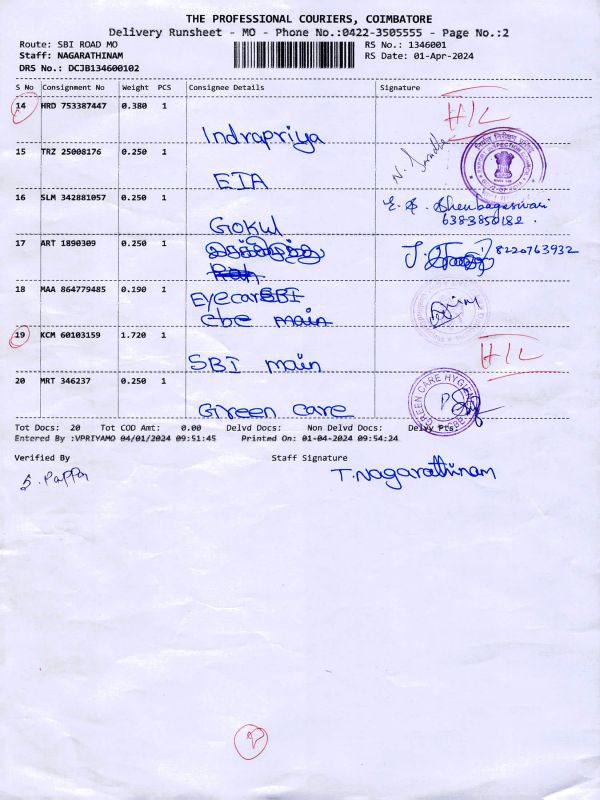 THE PROFESSIONAL COURIERS, COIMBATORE
Delivery Runsheet - MO - Phone No.:0422-3505555 - Page No.:2
Route: SBI ROAD MO RS No.: 1346001
Staff: NAGARATHINAM RS Date: 01-Apr-2024
DRS No.: DCJB134600102
S No Consignment No Weight PCS Consignee Details Signature
14 HRD 753387447 0.380 1 H/L
Indrapriya
15 TRZ 25008176 0.250 1
EIA
16 SLM 342881057 0.250 1 E. B. Shenbageswari
6383850182.
Gokul
17 ART 1890309 0.250 1 8220763932
18 MAA 864779485 0.190 1
Eyecare SBI
cbe main
19 KCM 60103159 1.720 1 H/L
SBI main
20 MRT 346237 0.250 1
Green Care
GREEN CARE HYGIEN
Tot Docs: 20 Tot COD Amt: 0.00 Delvd Docs: Non Delvd Docs: Delvy Pts:
Entered By :VPRIYAMO 04/01/2024 09:51:45 Printed On: 01-04-2024 09:54:24
Verified By Staff Signature
S. Pappa T. Nagarathinam